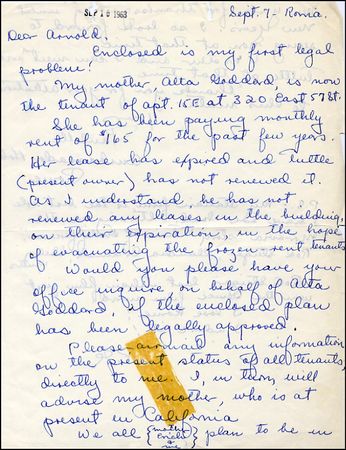 SEP 16 1963
Sept. 7 - Roma.
Dear Arnold.
Enclosed is my first legal
problem!
My mother Alta Goddard, is now
the tenant of apt. 15E at 320 East 57 St.
She has been paying monthly
rent of $165 for the past few years.
Her lease has expired and Tuttle
(present owner) has not renewed it.
As I understand, he has not
renewed any leases in the building,
on their expiration, in the hope
of evacuating the frozen rent tenants.
Would you please have your
office inquire, on behalf of Alta
Goddard, if the enclosed plan
has been legally approved.
Please any information
on the present status of all tenants,
directly to me. I, in turn, will
advise my mother, who is at
present in California
We all {mother & me} plan to be in